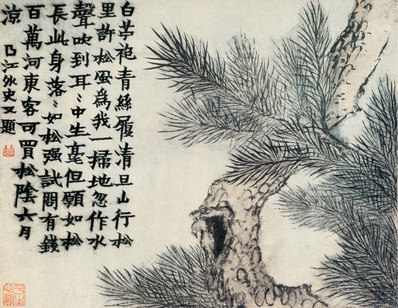 白苧袍青絲履清旦山行松
里許松風為我一掃地忽作水
聲吹到耳〻中生毫但願如松
長此身落〻如松強試問有錢
百萬河東客可買松陰六月
涼 曲江外史又題